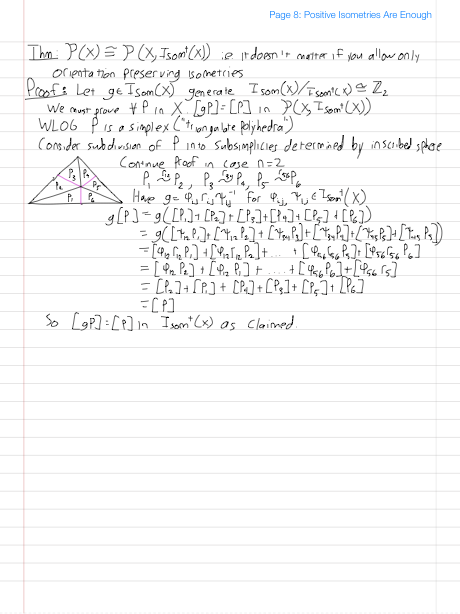 Page 8: Positive Isometries Are Enough
Thm: P(X) ≅ P(X, Isom⁺(X)) i.e. it doesn't matter if you allow only
orientation preserving isometries
Proof: Let g∈Isom(X) generate Isom(X)/Isom⁺(X) ≅ Z₂
We must prove ∀ P in X [gP]=[P] in P(X, Isom⁺(X))
WLOG P is a simplex ("triangulate polyhedra")
Consider subdivision of P into subsimplicies determined by inscribed sphere
Continue proof in case n=2
P₃ P₄
P₅
P₁ P₆
P₁ ~ P₂, P₃ ~ P₄, P₅ ~ P₆
Have g = φᵢⱼ rᵢⱼ ψᵢⱼ⁻¹ for φᵢⱼ, ψᵢⱼ ∈ Isom⁺(X)
g[P] = g([P₁]+[P₂]+[P₃]+[P₄]+[P₅]+[P₆])
= g([ψ₁₂P₁]+[ψ₁₂P₂]+[ψ₃₄P₃]+[ψ₃₄P₄]
= [φ₁₂r₁₂P₁]+[φ₁₂r₁₂P₂]+... +[φ₅₆r₅₆P₅]+[φ₅₆r₅₆P₆]
= [φ₁₂P₂]+[φ₁₂P₁]+....+[φ₅₆P₆]+[φ₅₆
= [P₂]+[P₁]+[P₄]+[P₃]+[P₅]+[P₆]
= [P]
So [gP]=[P] in Isom⁺(X) as claimed.